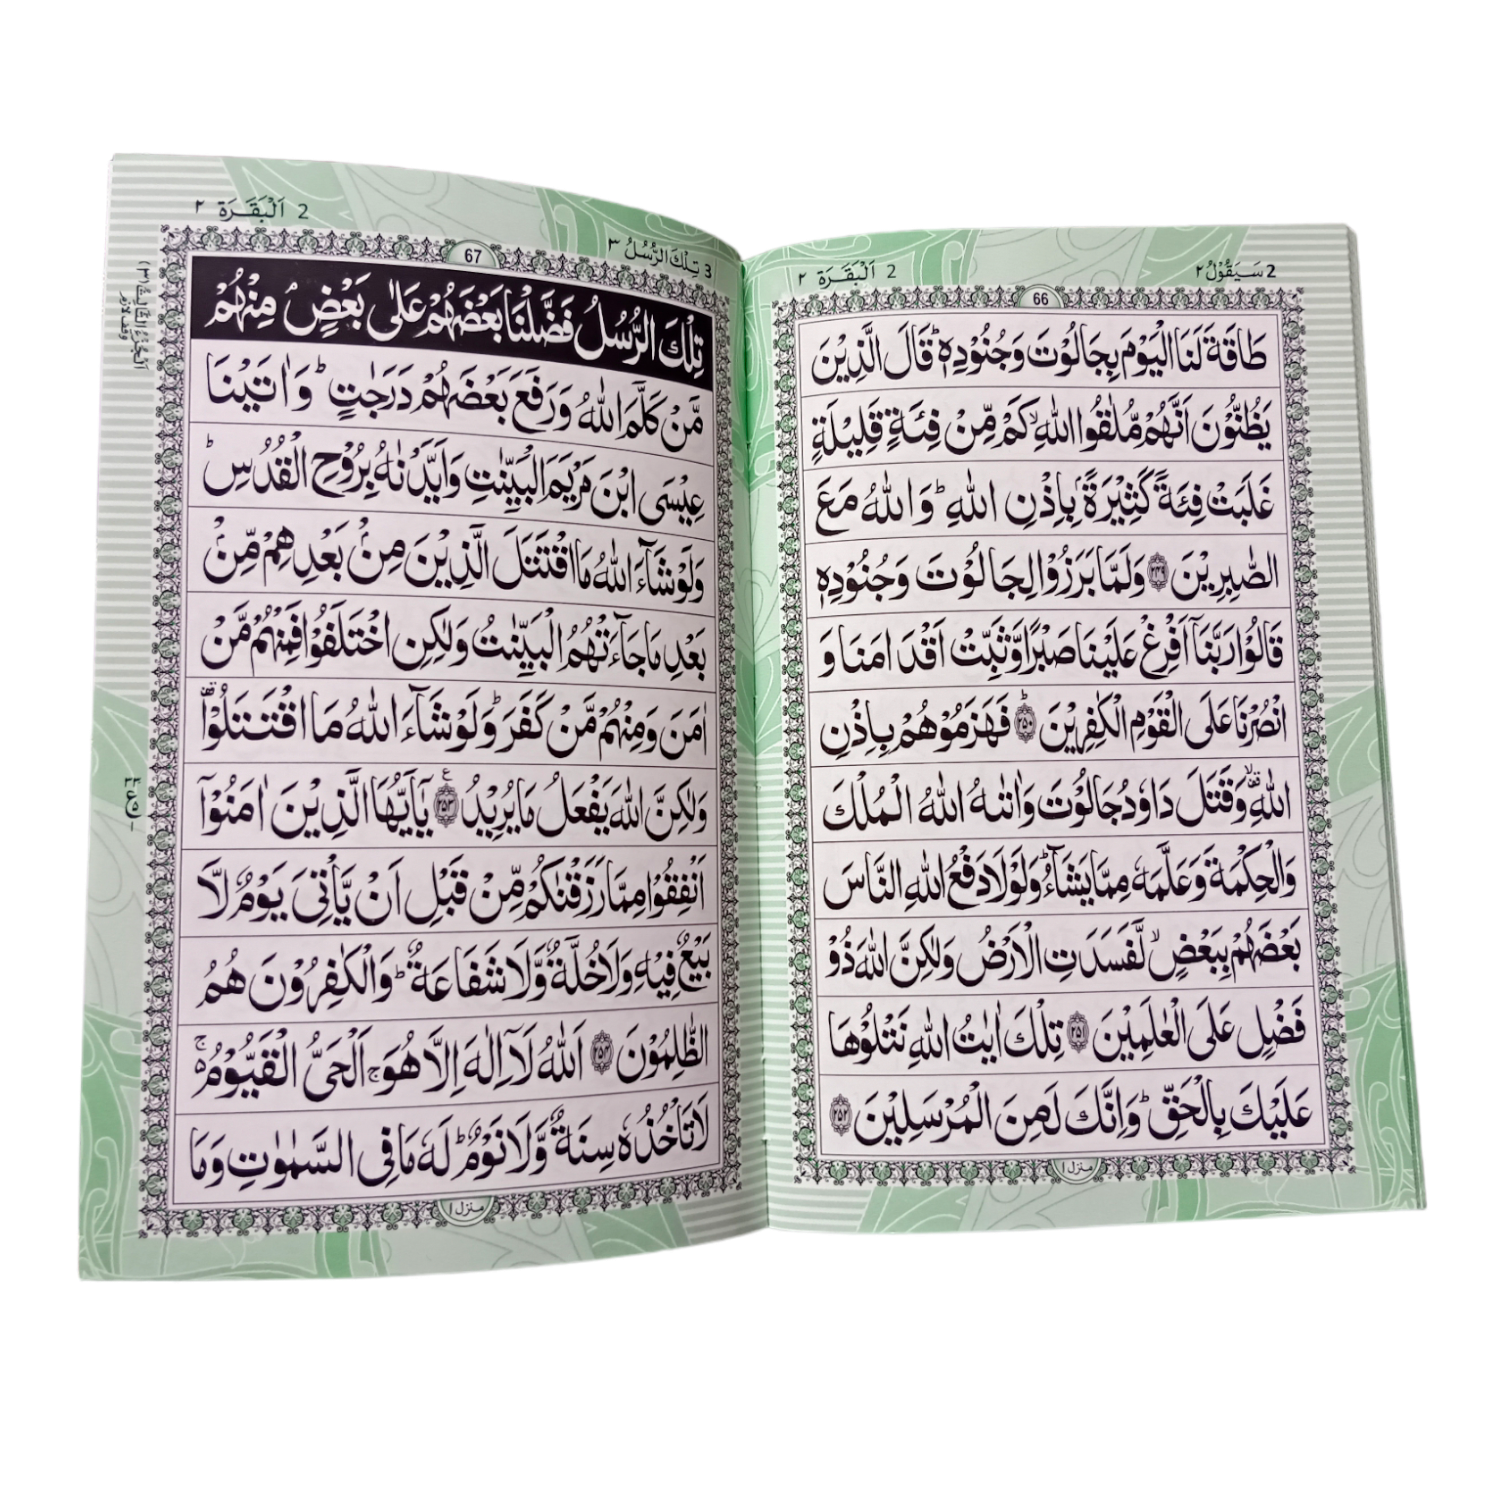 2 سَيَقُوْلُ ٢
66
2 اَلْبَقَرَة ٢
طَاقَةَ لَنَا الْيَوْمَ بِجَالُوْتَ وَجُنُوْدِهٖ ؕ قَالَ الَّذِيْنَ
يَظُنُّوْنَ اَنَّهُمْ مُّلٰقُوا اللّٰهِ ۙ كَمْ مِّنْ فِئَةٍ قَلِيْلَةٍ
غَلَبَتْ فِئَةً كَثِيْرَةً ۢ بِاِذْنِ اللّٰهِ ؕ وَاللّٰهُ مَعَ
الصّٰبِرِيْنَ ﴿۲۴۹﴾ وَلَمَّا بَرَزُوْا لِجَالُوْتَ وَجُنُوْدِهٖ
قَالُوْا رَبَّنَاۤ اَفْرِغْ عَلَيْنَا صَبْرًا وَّثَبِّتْ اَقْدَامَنَا وَ
انْصُرْنَا عَلَى الْقَوْمِ الْكٰفِرِيْنَ ؕ﴿۲۵۰﴾ فَهَزَمُوْهُمْ بِاِذْنِ
اللّٰهِ ۙ۫ وَقَتَلَ دَاوٗدُ جَالُوْتَ وَاٰتٰىهُ اللّٰهُ الْمُلْكَ
وَالْحِكْمَةَ وَعَلَّمَهٗ مِمَّا يَشَآءُ ؕ وَلَوْلَا دَفْعُ اللّٰهِ النَّاسَ
بَعْضَهُمْ بِبَعْضٍ ۙ لَّفَسَدَتِ الْاَرْضُ وَلٰكِنَّ اللّٰهَ ذُوْ
فَضْلٍ عَلَى الْعٰلَمِيْنَ ﴿۲۵۱﴾ تِلْكَ اٰيٰتُ اللّٰهِ نَتْلُوْهَا
عَلَيْكَ بِالْحَقِّ ؕ وَاِنَّكَ لَمِنَ الْمُرْسَلِيْنَ ﴿۲۵۲﴾
منزل ١
3 تِلْكَ الرُّسُلُ ٣
67
2 اَلْبَقَرَة ٢
تِلْكَ الرُّسُلُ فَضَّلْنَا بَعْضَهُمْ عَلٰى بَعْضٍ ۘ مِنْهُمْ
مَّنْ كَلَّمَ اللّٰهُ وَرَفَعَ بَعْضَهُمْ دَرَجٰتٍ ؕ وَاٰتَيْنَا
عِيْسَى ابْنَ مَرْيَمَ الْبَيِّنٰتِ وَاَيَّدْنٰهُ بِرُوْحِ الْقُدُسِ ؕ
وَلَوْ شَآءَ اللّٰهُ مَا اقْتَتَلَ الَّذِيْنَ مِنْۢ بَعْدِهِمْ مِّنْۢ
بَعْدِ مَا جَآءَتْهُمُ الْبَيِّنٰتُ وَلٰكِنِ اخْتَلَفُوْا فَمِنْهُمْ مَّنْ
اٰمَنَ وَمِنْهُمْ مَّنْ كَفَرَ ؕ وَلَوْ شَآءَ اللّٰهُ مَا اقْتَتَلُوْا ۟
وَلٰكِنَّ اللّٰهَ يَفْعَلُ مَا يُرِيْدُ ﴿۲۵۳﴾ يٰۤاَيُّهَا الَّذِيْنَ اٰمَنُوْۤا
اَنْفِقُوْا مِمَّا رَزَقْنٰكُمْ مِّنْ قَبْلِ اَنْ يَّاْتِيَ يَوْمٌ لَّا
بَيْعٌ فِيْهِ وَلَا خُلَّةٌ وَّلَا شَفَاعَةٌ ؕ وَالْكٰفِرُوْنَ هُمُ
الظّٰلِمُوْنَ ﴿۲۵۴﴾ اَللّٰهُ لَاۤ اِلٰهَ اِلَّا هُوَ ۚ اَلْحَيُّ الْقَيُّوْمُ ۚ
لَا تَاْخُذُهٗ سِنَةٌ وَّلَا نَوْمٌ ؕ لَهٗ مَا فِى السَّمٰوٰتِ وَمَا
منزل ١
اَلْجُزْءُ الثَّالِثُ (٣)
وقف لازم